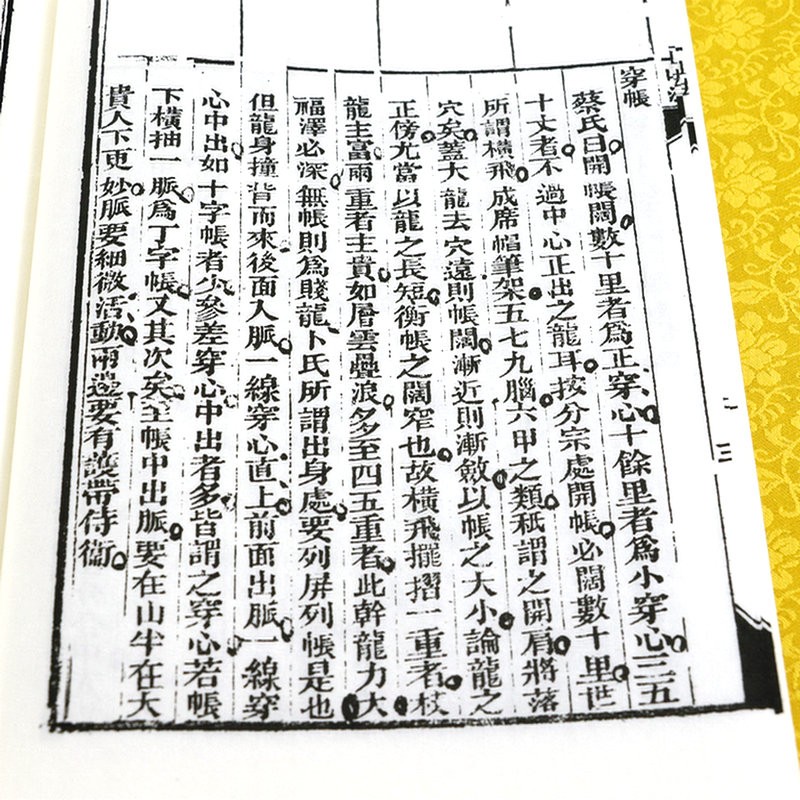 穿帳
蔡氏曰開帳闊數十里者為正穿心十餘里者為小穿心三五
十丈者不過中心正出之龍耳按分宗處開帳必闊數十里世
所謂橫飛成席帽筆架五七九腦六甲之類秖謂之開肩將落
穴矣蓋大龍去穴遠則帳闊漸近則漸斂以帳之大小論龍之
正傍尤當以龍之長短衡帳之闊窄也故橫飛擺摺一重者杖
龍主富兩重者主貴如層雲疊浪多至四五重者此幹龍力大
福澤必深無帳則為賤龍卜氏所謂出身處要列屏列帳是也
但龍身撞背而來後面入脈一線穿心直上前面出脈一線穿
心中出如十字帳者少參差穿心中出者多皆謂之穿心若帳
下橫抽一脈為丁字帳又其次矣至帳中出脈要在山半在大
貴人下更妙脈要細微活動兩邊要有護帶侍衛
三